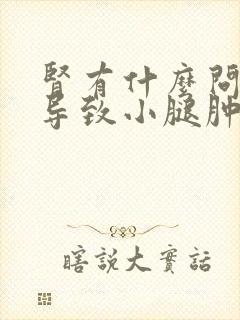 腎有什麼問
导致小腿肿
瞎說大實話